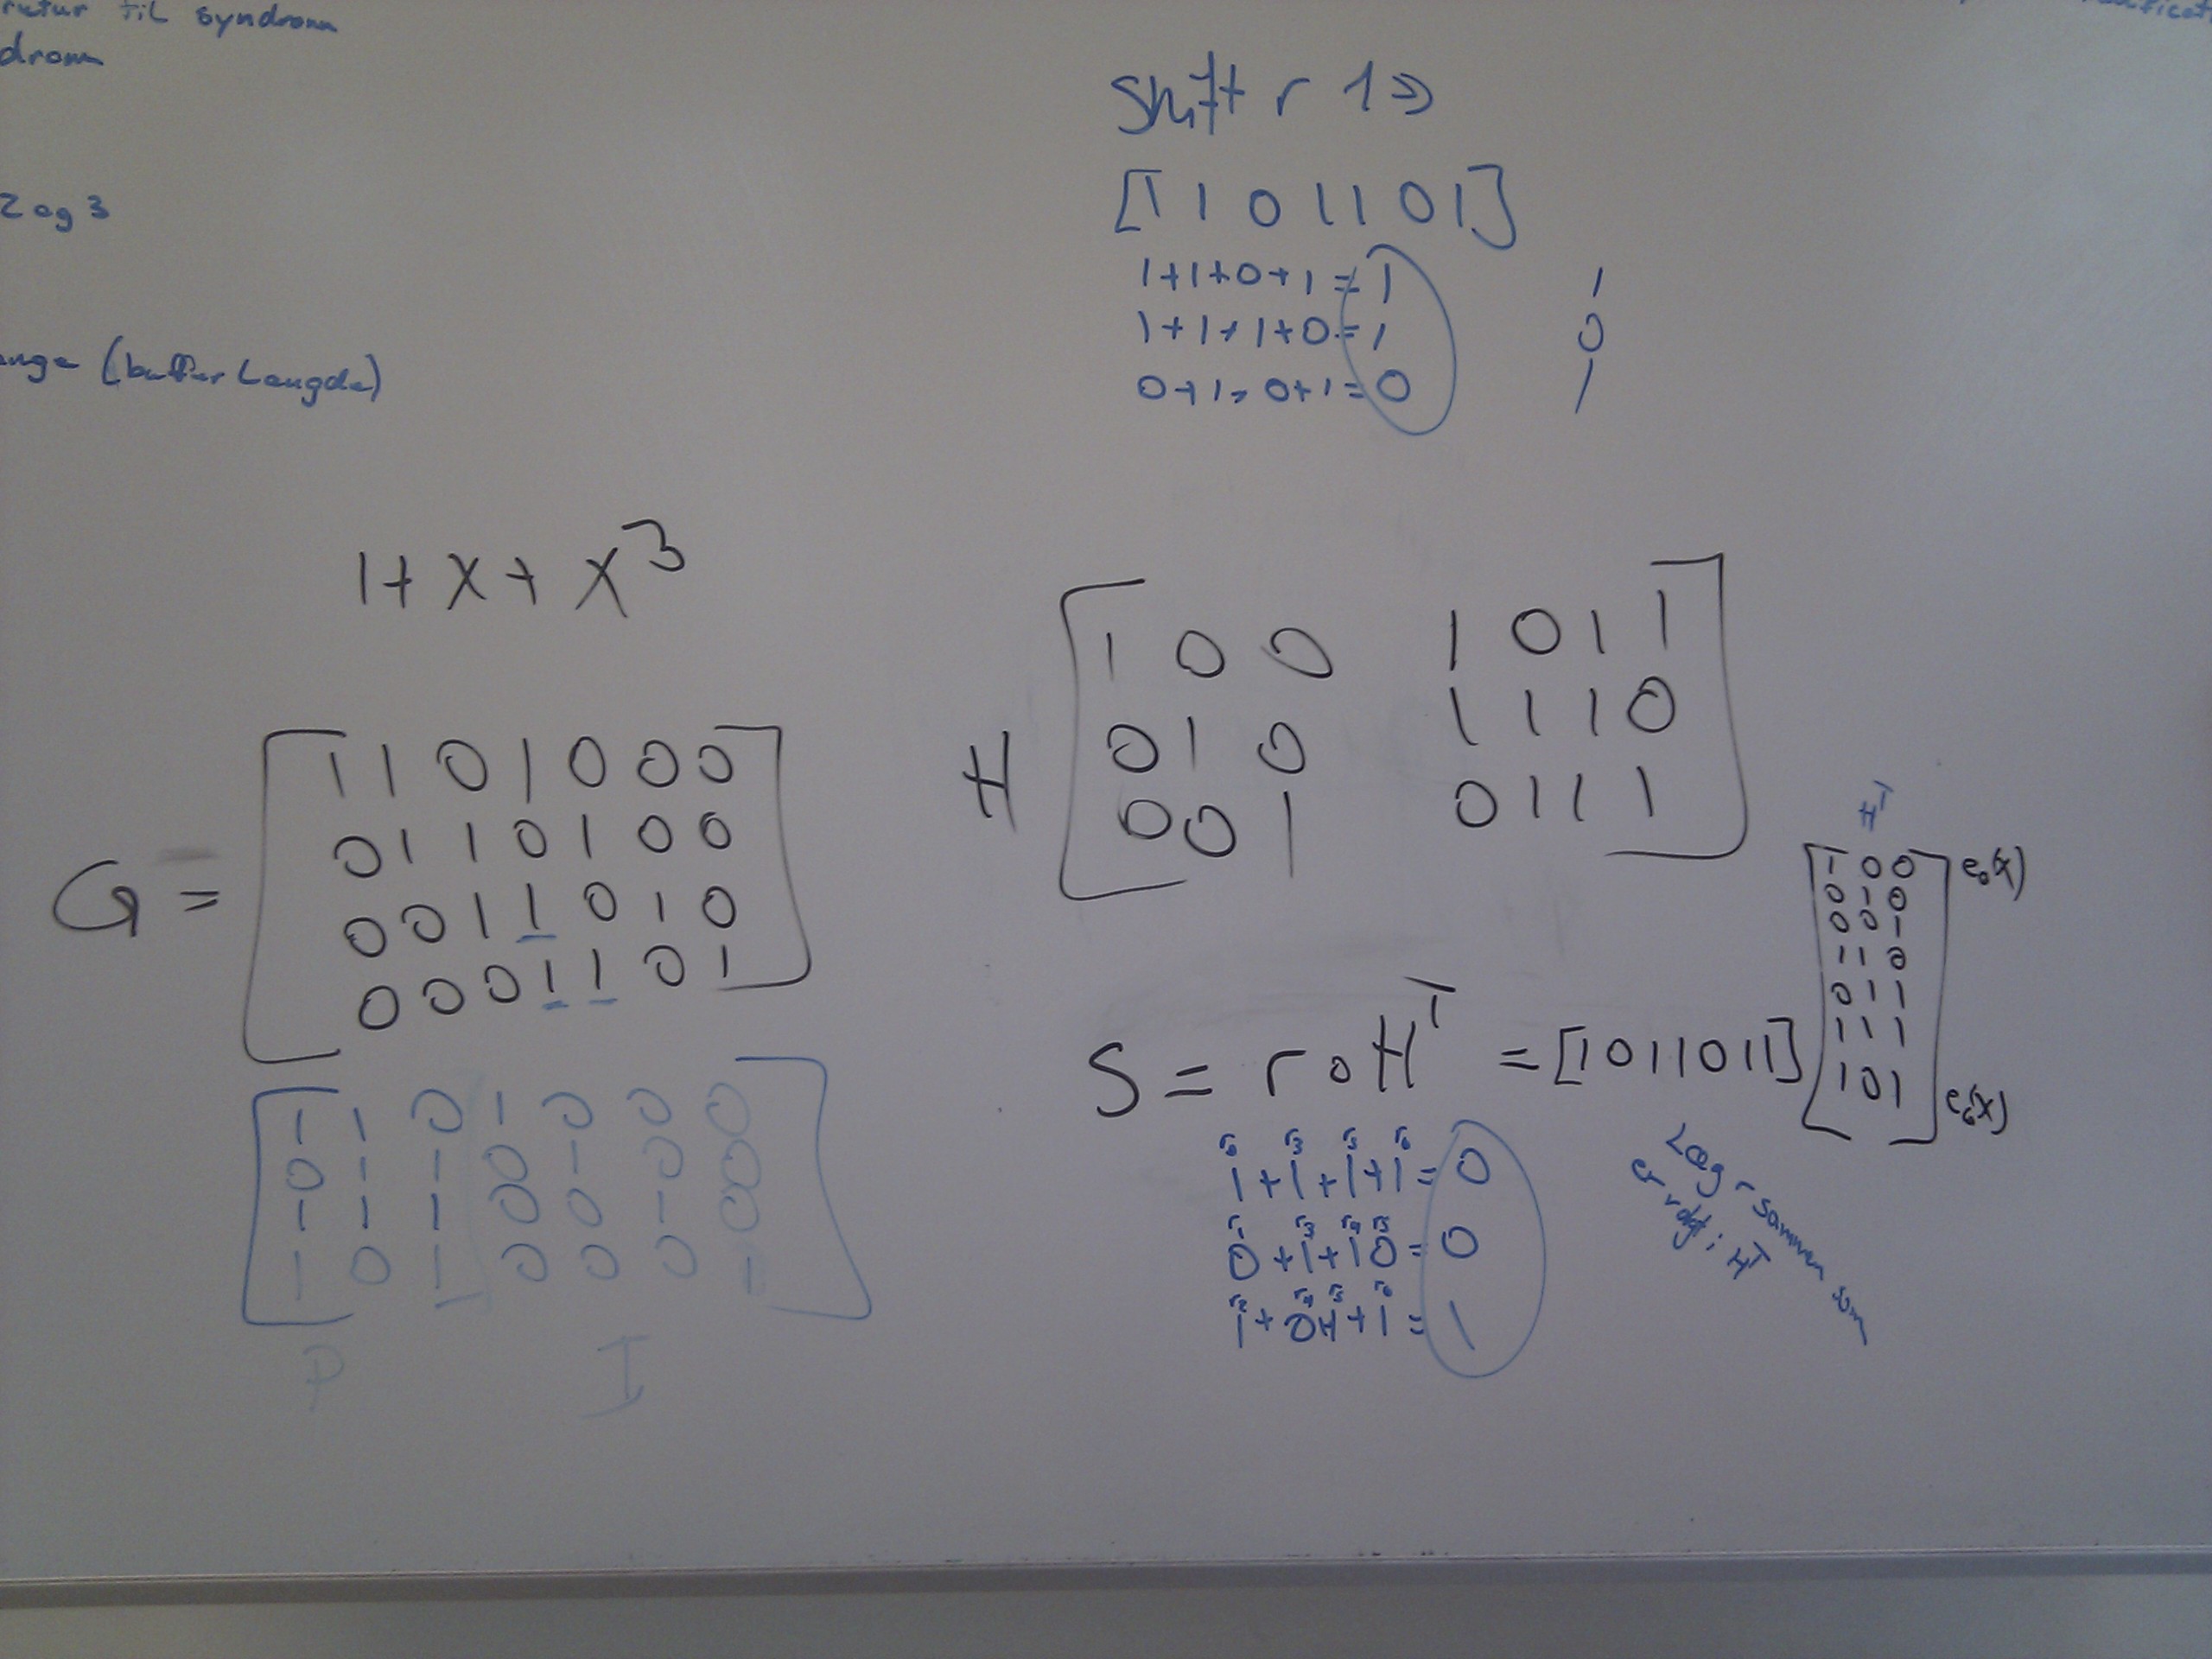 til syndrom
drom
2 og 3
(buffer Længde)
Shift r 1 ⇒
[1 1 0 1 1 0 1]
1+1+0+1=1 1
1+1+1+0=1 0
0+1+0+1=0 1
1+x+x³
G =
1 1 0 1 0 0 0
0 1 1 0 1 0 0
0 0 1 1 0 1 0
0 0 0 1 1 0 1
1 1 0 1 0 0 0
0 1 1 0 1 0 0
1 1 1 0 0 1 0
1 0 1 0 0 0 1
P I
H
1 0 0 1 0 1 1
0 1 0 1 1 1 0
0 0 1 0 1 1 1
S = r∘Hᵀ = [1011011]
Hᵀ
1 0 0 e₀(x)
0 1 0
0 0 1
1 1 0
0 1 1
1 1 1
1 0 1 e₆(x)
r₀ r₃ r₅ r₆
1+1+1+1=0
r₁ r₃ r₄ r₅
0+1+10=0
r₂ r₄ r₅ r₆
1+0+1+1=1
Læg r sammen som
er i Hᵀ